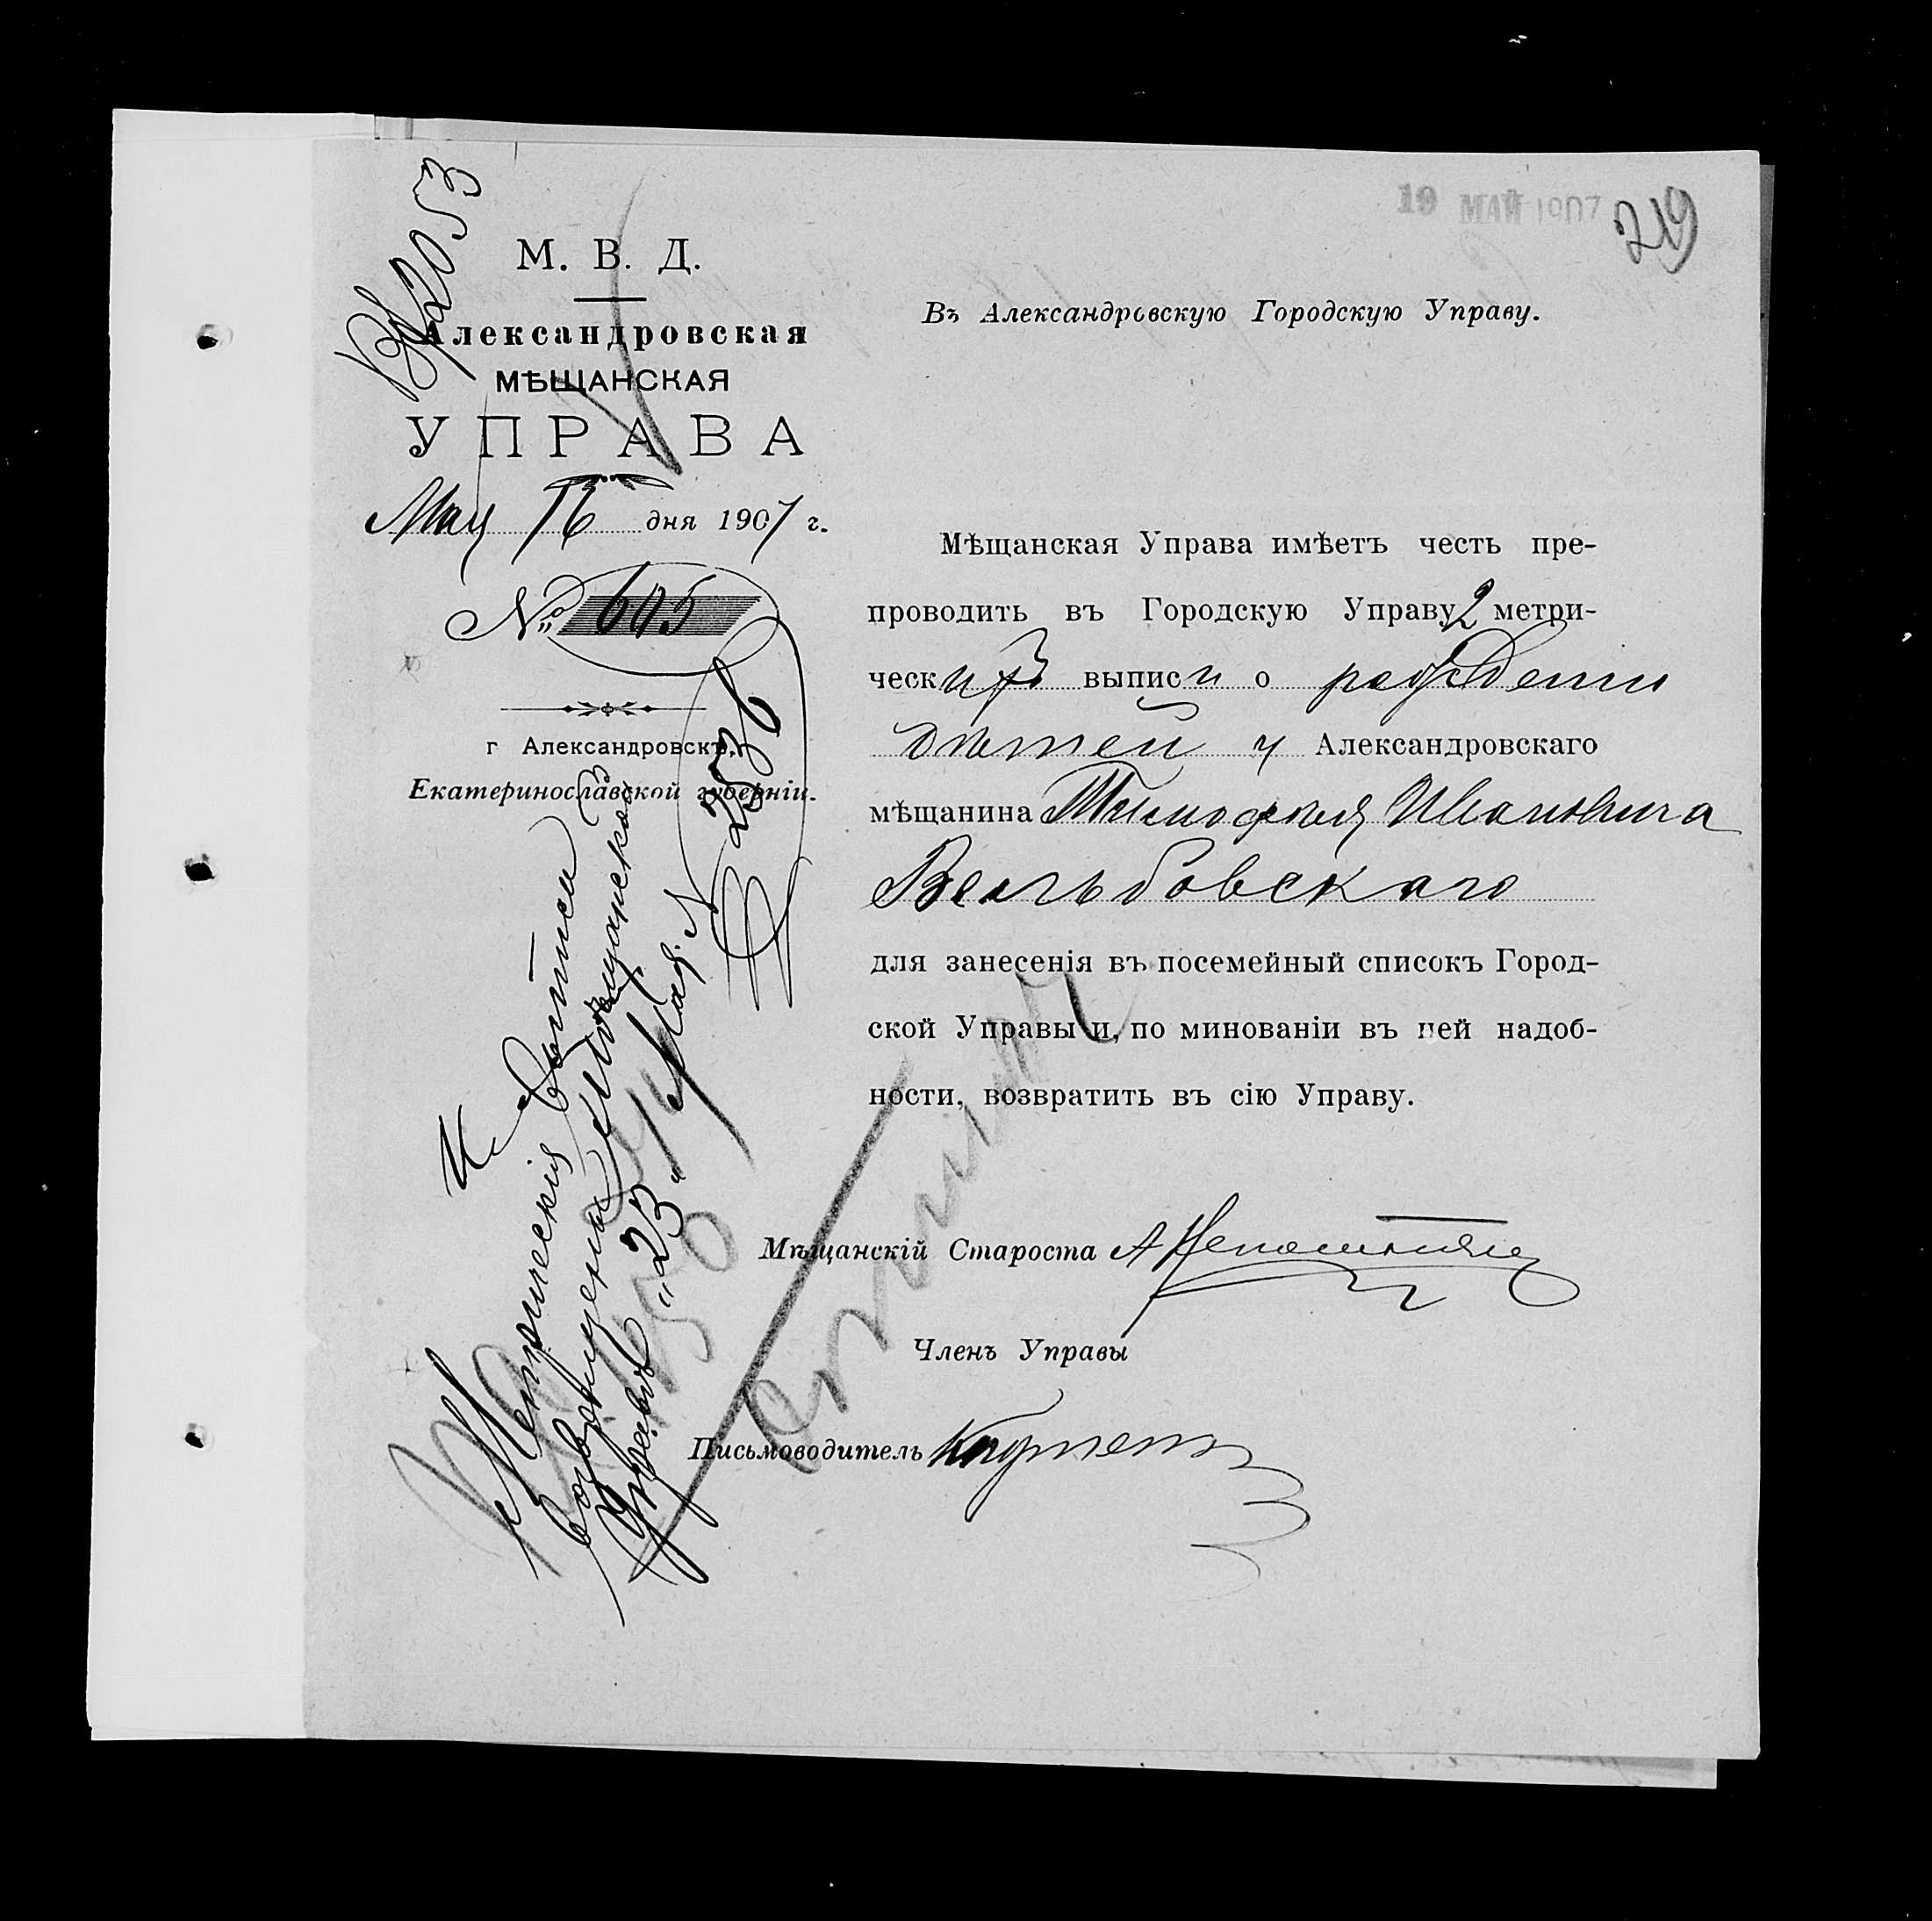 19 МАЙ 1907
219
Вх 2053
М. В. Д.
Александровская
МѢЩАНСКАЯ
УПРАВА
Мая 16 дня 1907 г.
№ 605
г Александровскъ,
Екатеринославской губерніи.
Въ Александровскую Городскую Управу.
Мѣщанская Управа имѣетъ честь пре-
проводить въ Городскую Управу 2 метри-
ческихъ выписи о рожденіи
дѣтей у Александровскаго
мѣщанина Тимофея Ивановича
Вельбовскаго
для занесенія въ посемейный списокъ Город-
ской Управы и, по минованіи въ ней надоб-
ности, возвратить въ сію Управу.
Мѣщанскій Староста
Членъ Управы
Письмоводитель
Метрическія выписи
возвращены Мѣщанской
Управѣ "23" Мая №
2536